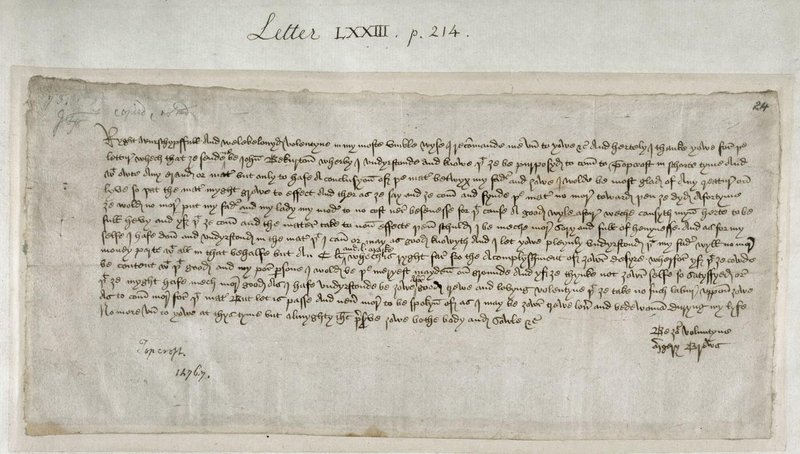 Letter LXXIII. p. 214.
24
Ryght wurschypffull and welebelovyd Volentyne in my moste umble wyse I recommande me un to yowe &c And hertely I thanke yowe for þe
lettur whech that ye sende me be John Bekurton wherby I undyrstonde and knowe þt ye be purposyd to com to Topcroft in schorte tyme and
wt owte any erand or mater but only to hafe a conclusyon of þe mater betwyx my fader and yowe I wolde be most glad of any creature on
lyve so þat the mater myght growe to effect and ther as ye say and ye com and fynde þe mater no more toward þen ye dyd afortyme
ye wold no more put my fader and my lady my moder to no cost ner besenesse for þt cause a good wyle aftyr weche causyth myn herte to be
full hevy and yf þt ye com and the mater take to non effecte þen schuld I be meche more sory and full of hevynesse And as for my
selfe I hafe don and undyrstond in the mater þt I can or may as good knowyth and I let yowe pleynly undyrstond þt my fader wyll no more
money parte wt all in that behalfe but an C li and l marke whech is ryght far fro the acomplyshment of yowr desyre Wherfor yf þt ye cowde
be content wt þt good and my por persone I wold be þe meryest mayden on grounde and yf ye thynke not yowr selfe so satysfyed or
þt ye myght hafe mech more good as I hafe undyrstonde be yowe afor good trewe and lovyng volentyne þt ye take no such labure uppon yowe
as to com more for þt mater But let is passe and never more to be spokyn of as I may be yowr trewe lover and bedewoman duryng my lyfe
No more un to yowe at thys tyme but almyghty Jhs preserve yowe bothe body and sowle &c
Be yor voluntyne
Mergery Brews
Topcroft.
1476/7.